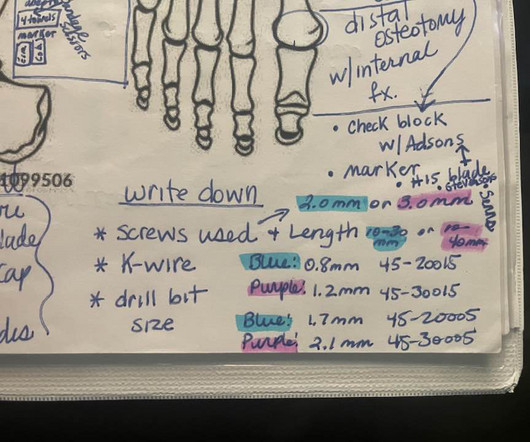 4 towels
marker
scissors
distal
osteotomy
w/internal
fx.
• check block
w/Adsons
• marker
• #15 blade
• Senns
1099506
write down
2.0mm or 3.0mm
* Screws used + Length 10-30 mm or 10-40mm
* K-wire
Blue: 0.8mm 45-20015
Purple: 1.2mm 45-30015
* drill bit
size
Blue: 1.7mm 45-20005
Purple: 2.1mm 45-30005